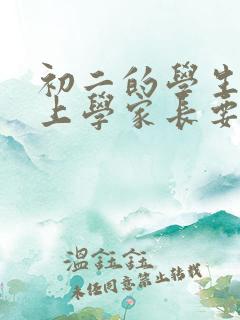 初二的學生
上學家長要
溫鈺鈺
未經同意禁止轉載